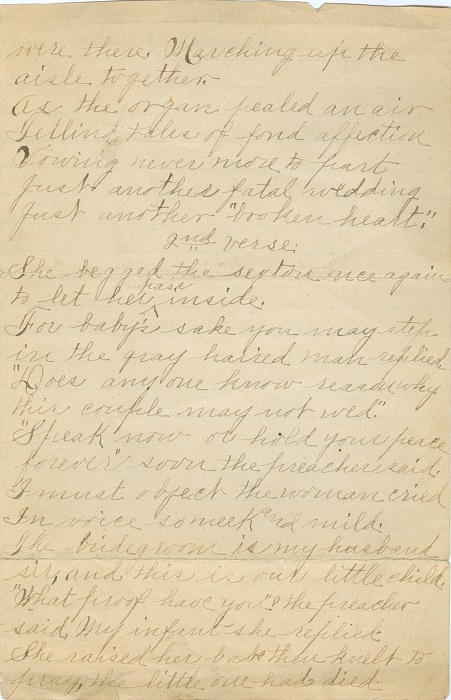 were there. Marching up the
aisle together.
As the organ pealed an air
Telling tales of fond affection
Vowing never more to part
Just another fatal wedding
Just another "broken heart".
2nd verse.
She begged the sexton once again
to let her pass inside.
For baby's sake you may step
in the gray haired man replied.
"Does any one know reason why
this couple may not wed".
"Speak now or hold your peace
forever" soon the preacher said.
I must object the woman cried
In voice so meek and mild.
The bridegroom is my husband
sir, and this is our little child.
"What proof have you"? the preacher
said. My infant she replied.
She raised her babe then knelt to
pray, the little one had died.